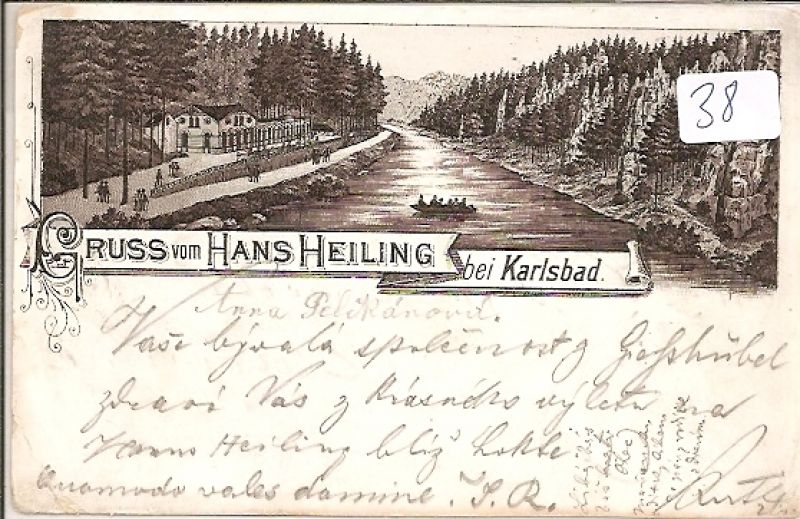 38
GRUSS vom HANS HEILING
bei Karlsbad.
Anna Pelikánová.
Vaše bývalá společnost z Giesshübel
zdraví Vás z krásného výletu na
Hanns Heiling blíž Lokte.
Quomodo vales domine. J. R.